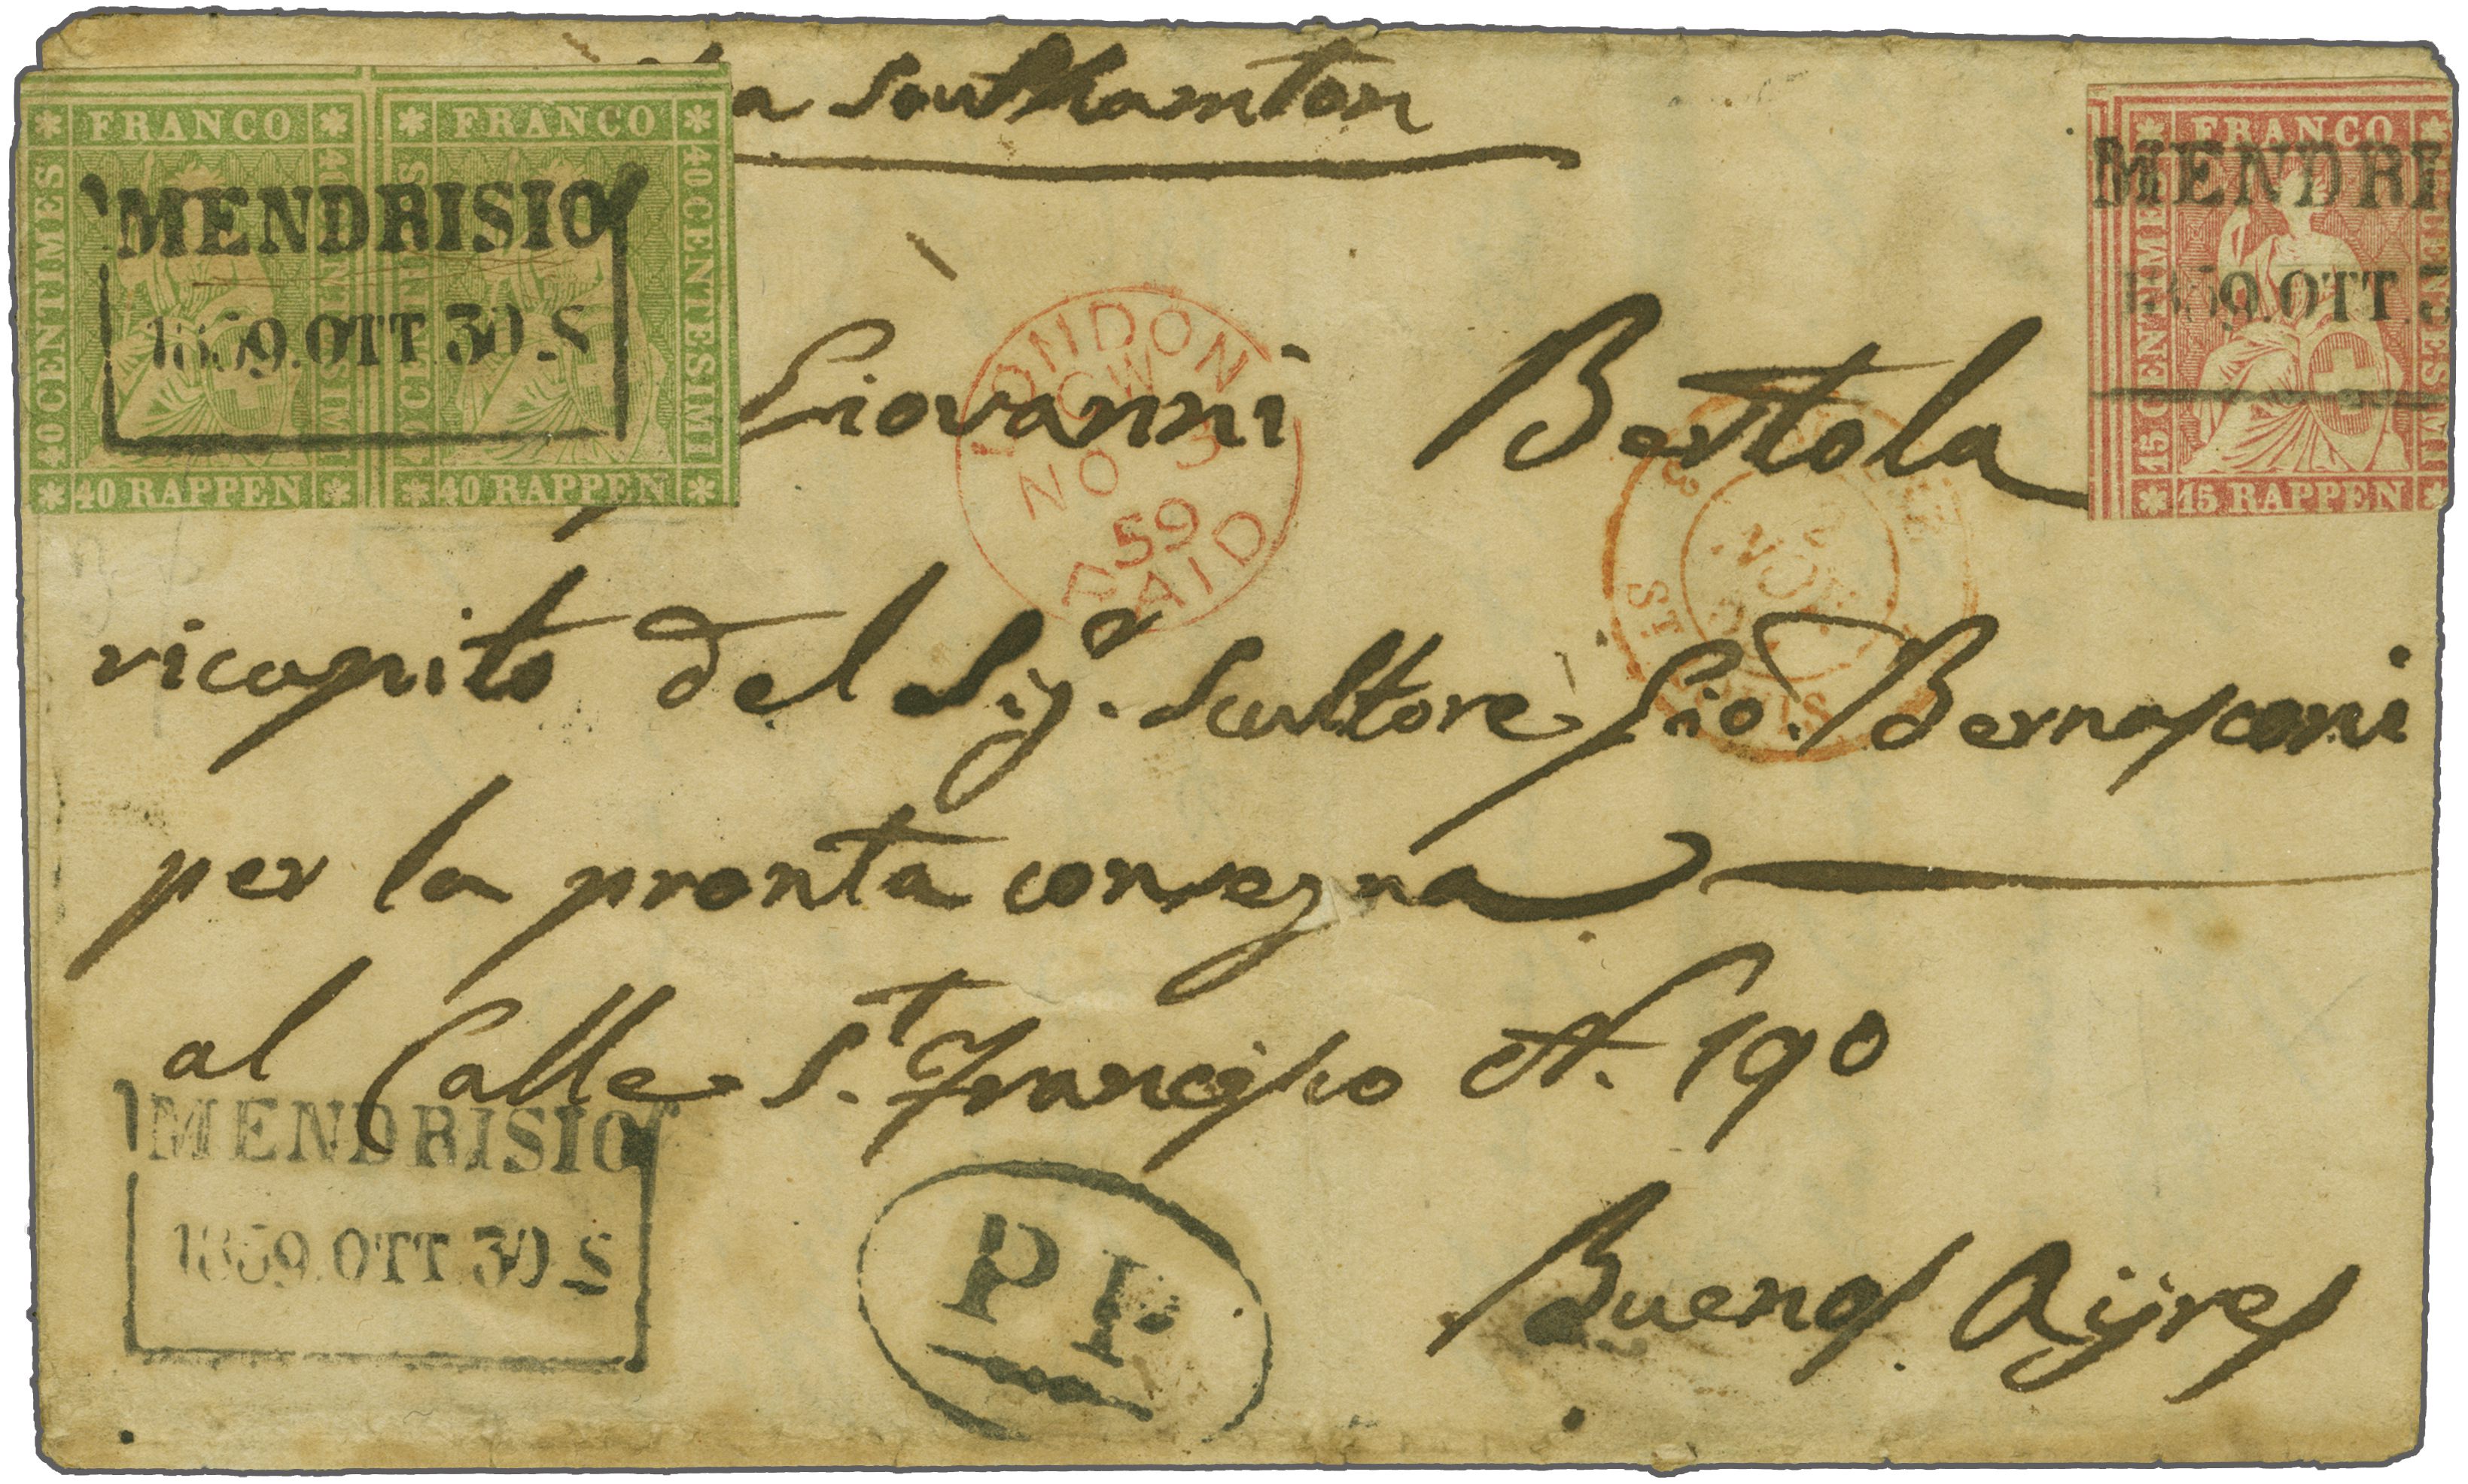 a Southamton
FRANCO
40 CENTIMES
40 CENTESIMI
40 RAPPEN
FRANCO
40 CENTESIMI
40 RAPPEN
MENDRISIO
1859.OTT.30.S
FRANCO
15 CENTIMES
15 RAPPEN
MENDRI
1859.OTT.
LONDON
CW
NO 3
59
PAID
2
NOV
ST LOUIS
Giovanni Bertola
ricapito del Sigr. Scultore Gio. Bernasconi
per la pronta consegna
al Calle S.t Francisco N. 190
Buenos Ayres
MENDRISIO
1859.OTT.30.S